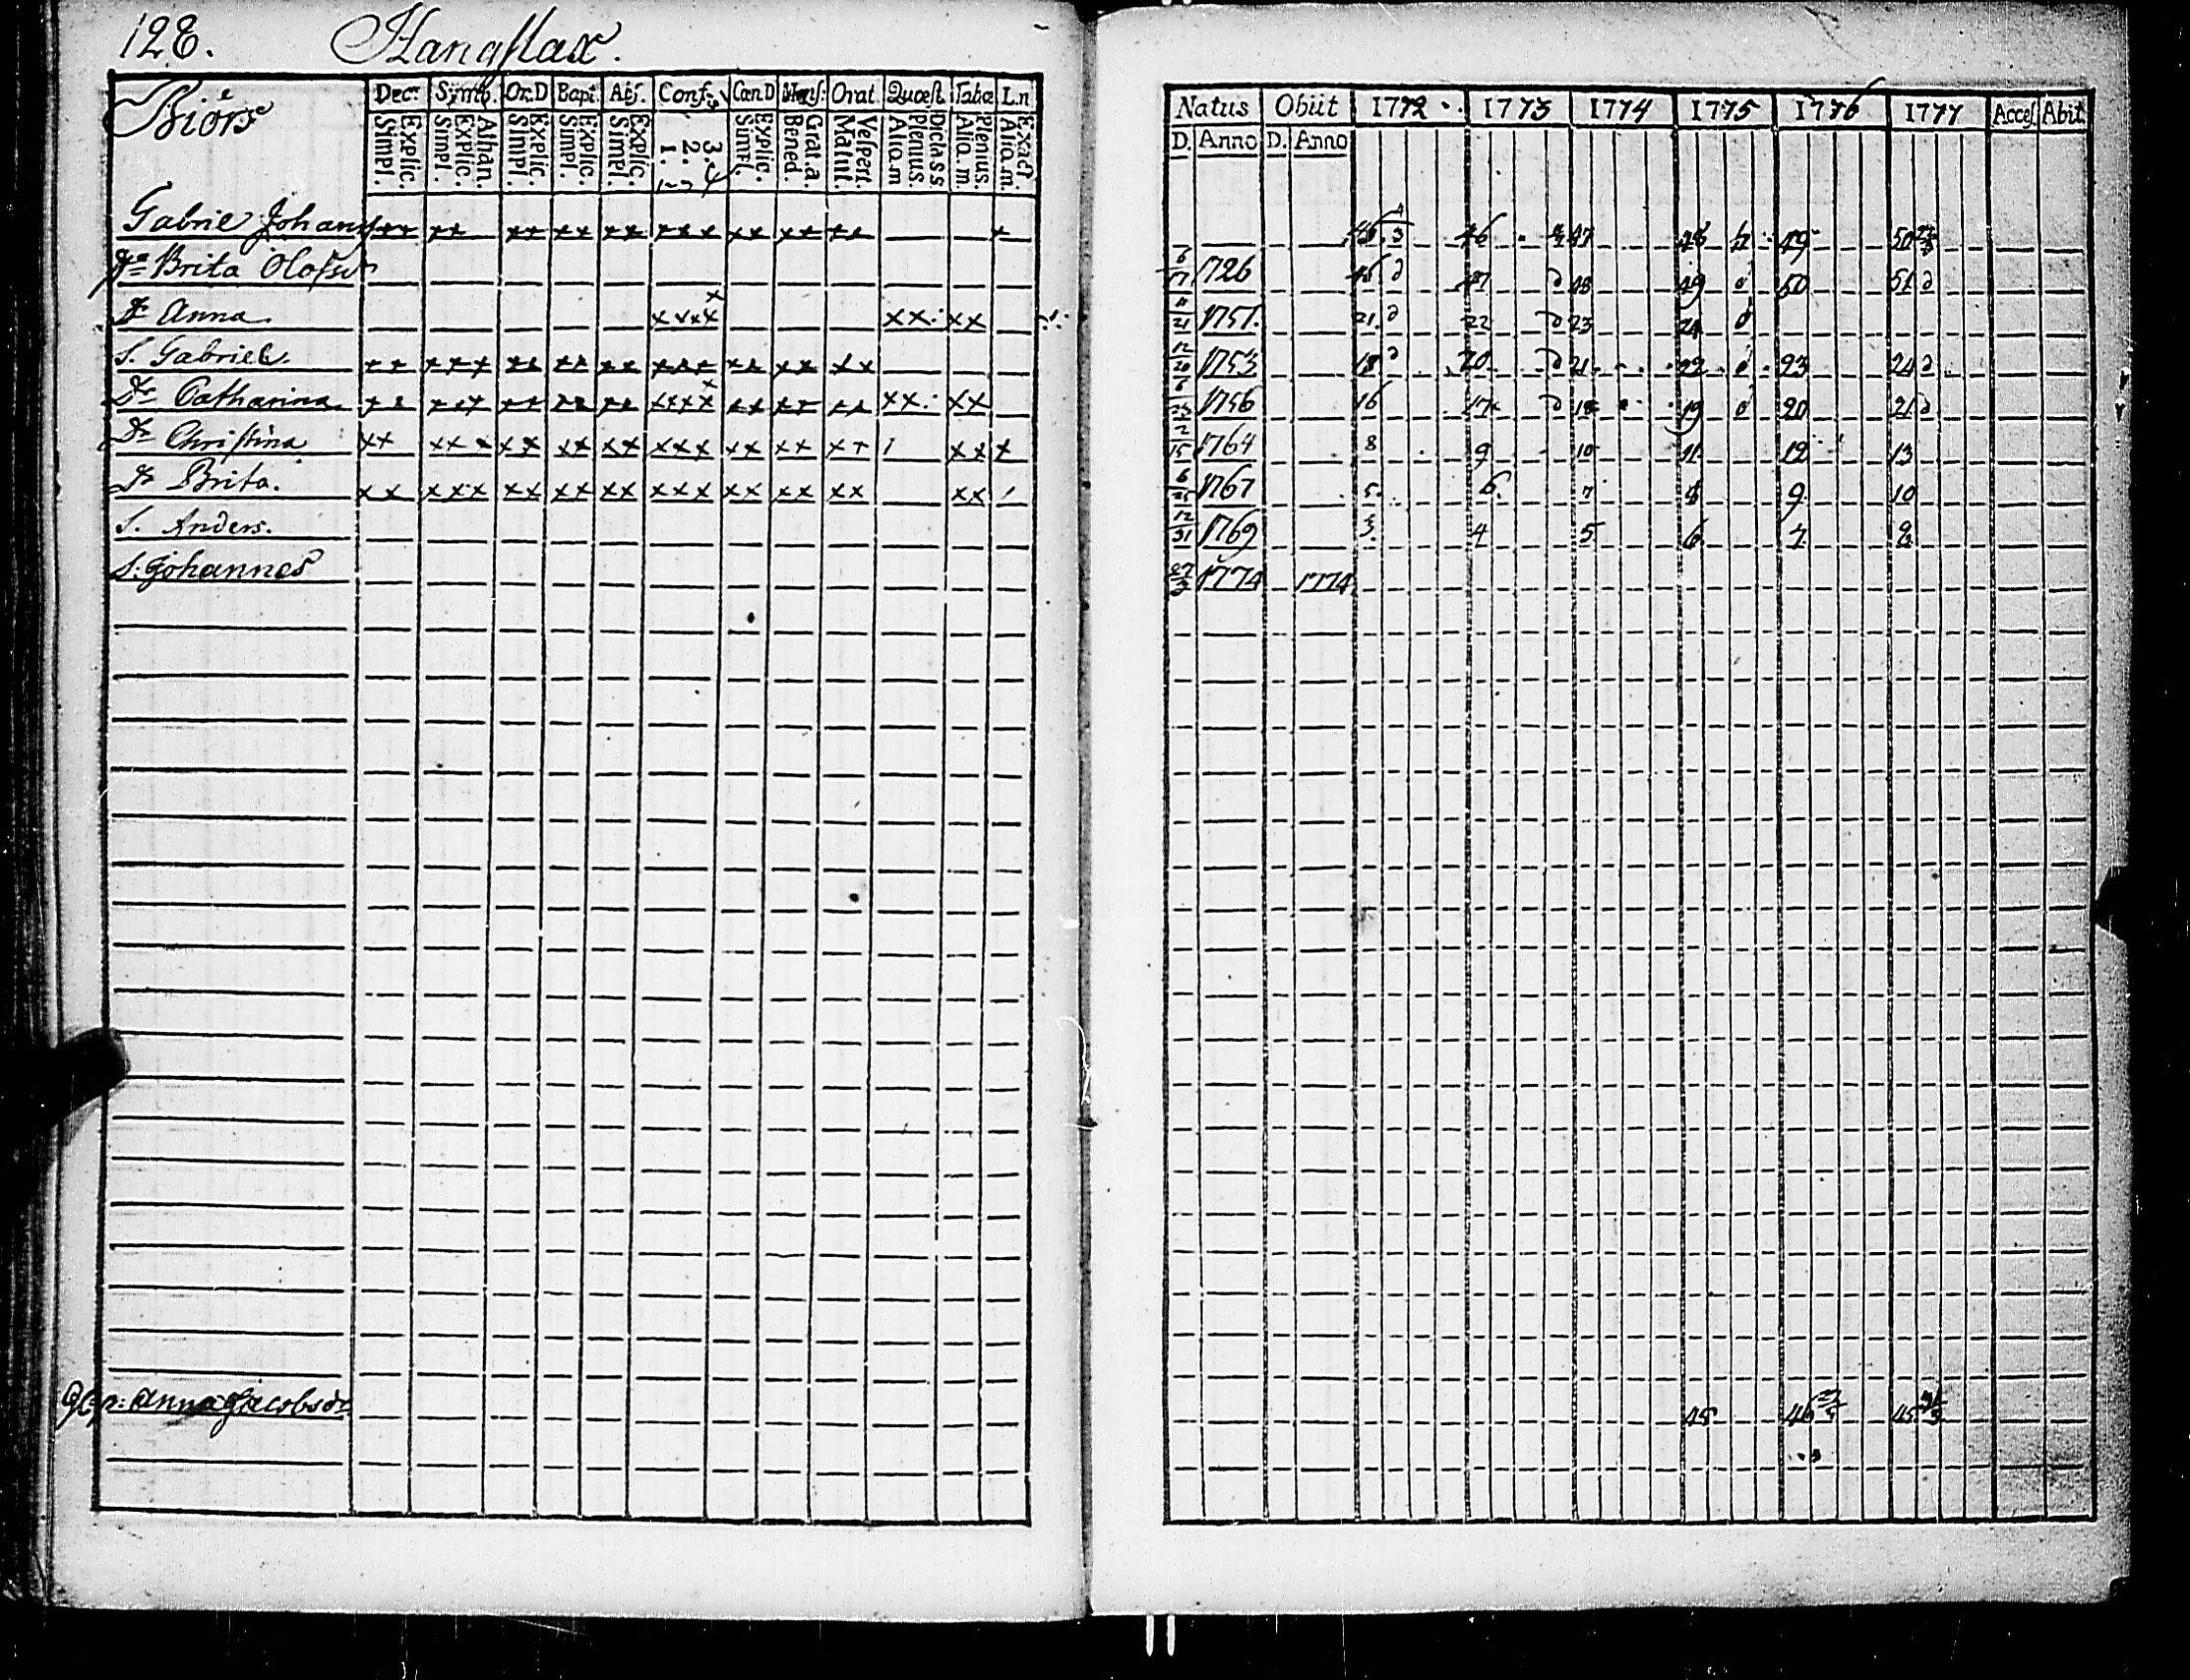 128. Hangflax.
Biörs
Dec. Symb. Or.D Bapt. Abs. Conf. Cœn D Mens: Orat. Quæst. Tabæ L.n
Explic. Simpl. Athan. Explic. Simpl. Explic. Simpl. Explic. Simpl. Explic. Simpl. 3. 2. 1. Explic. Simpl. Grat. a. Bened. Vespert. Matut. Dicta S S. Plenius. Aliq. m Plenius. Aliq. m. Exact. Aliq. m.
Natus Obiit 1772 1773 1774 1775 1776 1777 Acces. Abit
D. Anno D. Anno
Gabriel Johans xx xx xx xx xx xxx xx xx xx x 46 47 48 49 50
Brita Olofsdr 6/17 1726 46 47 48 49 50 51
Dr Anna xxxx xx xx 11/21 1751. 21 22 23 24
S. Gabriel xx xxx xx xx xx xxx xx xx xx 12/20 1753 18 20 21 22 23 24
Dr Catharina xx xxx xx xx xx xxxx xx xx xx xx xx 1756 16 17 18 19 20 21
Dr Christina xx xxx xx xx xx xxx xx xx xx / xx x 2/15 1764 8 9 10 11 12 13
Dr Brita. xx xxx xx xx xx xxx xx xx xx xx / 1767 5 6 7 8 9 10
S. Anders. 12/31 1769 3 4 5 6 7 8
S. Johannes 27/3 1774 1774
Anna Jacobsdr 45 46 45